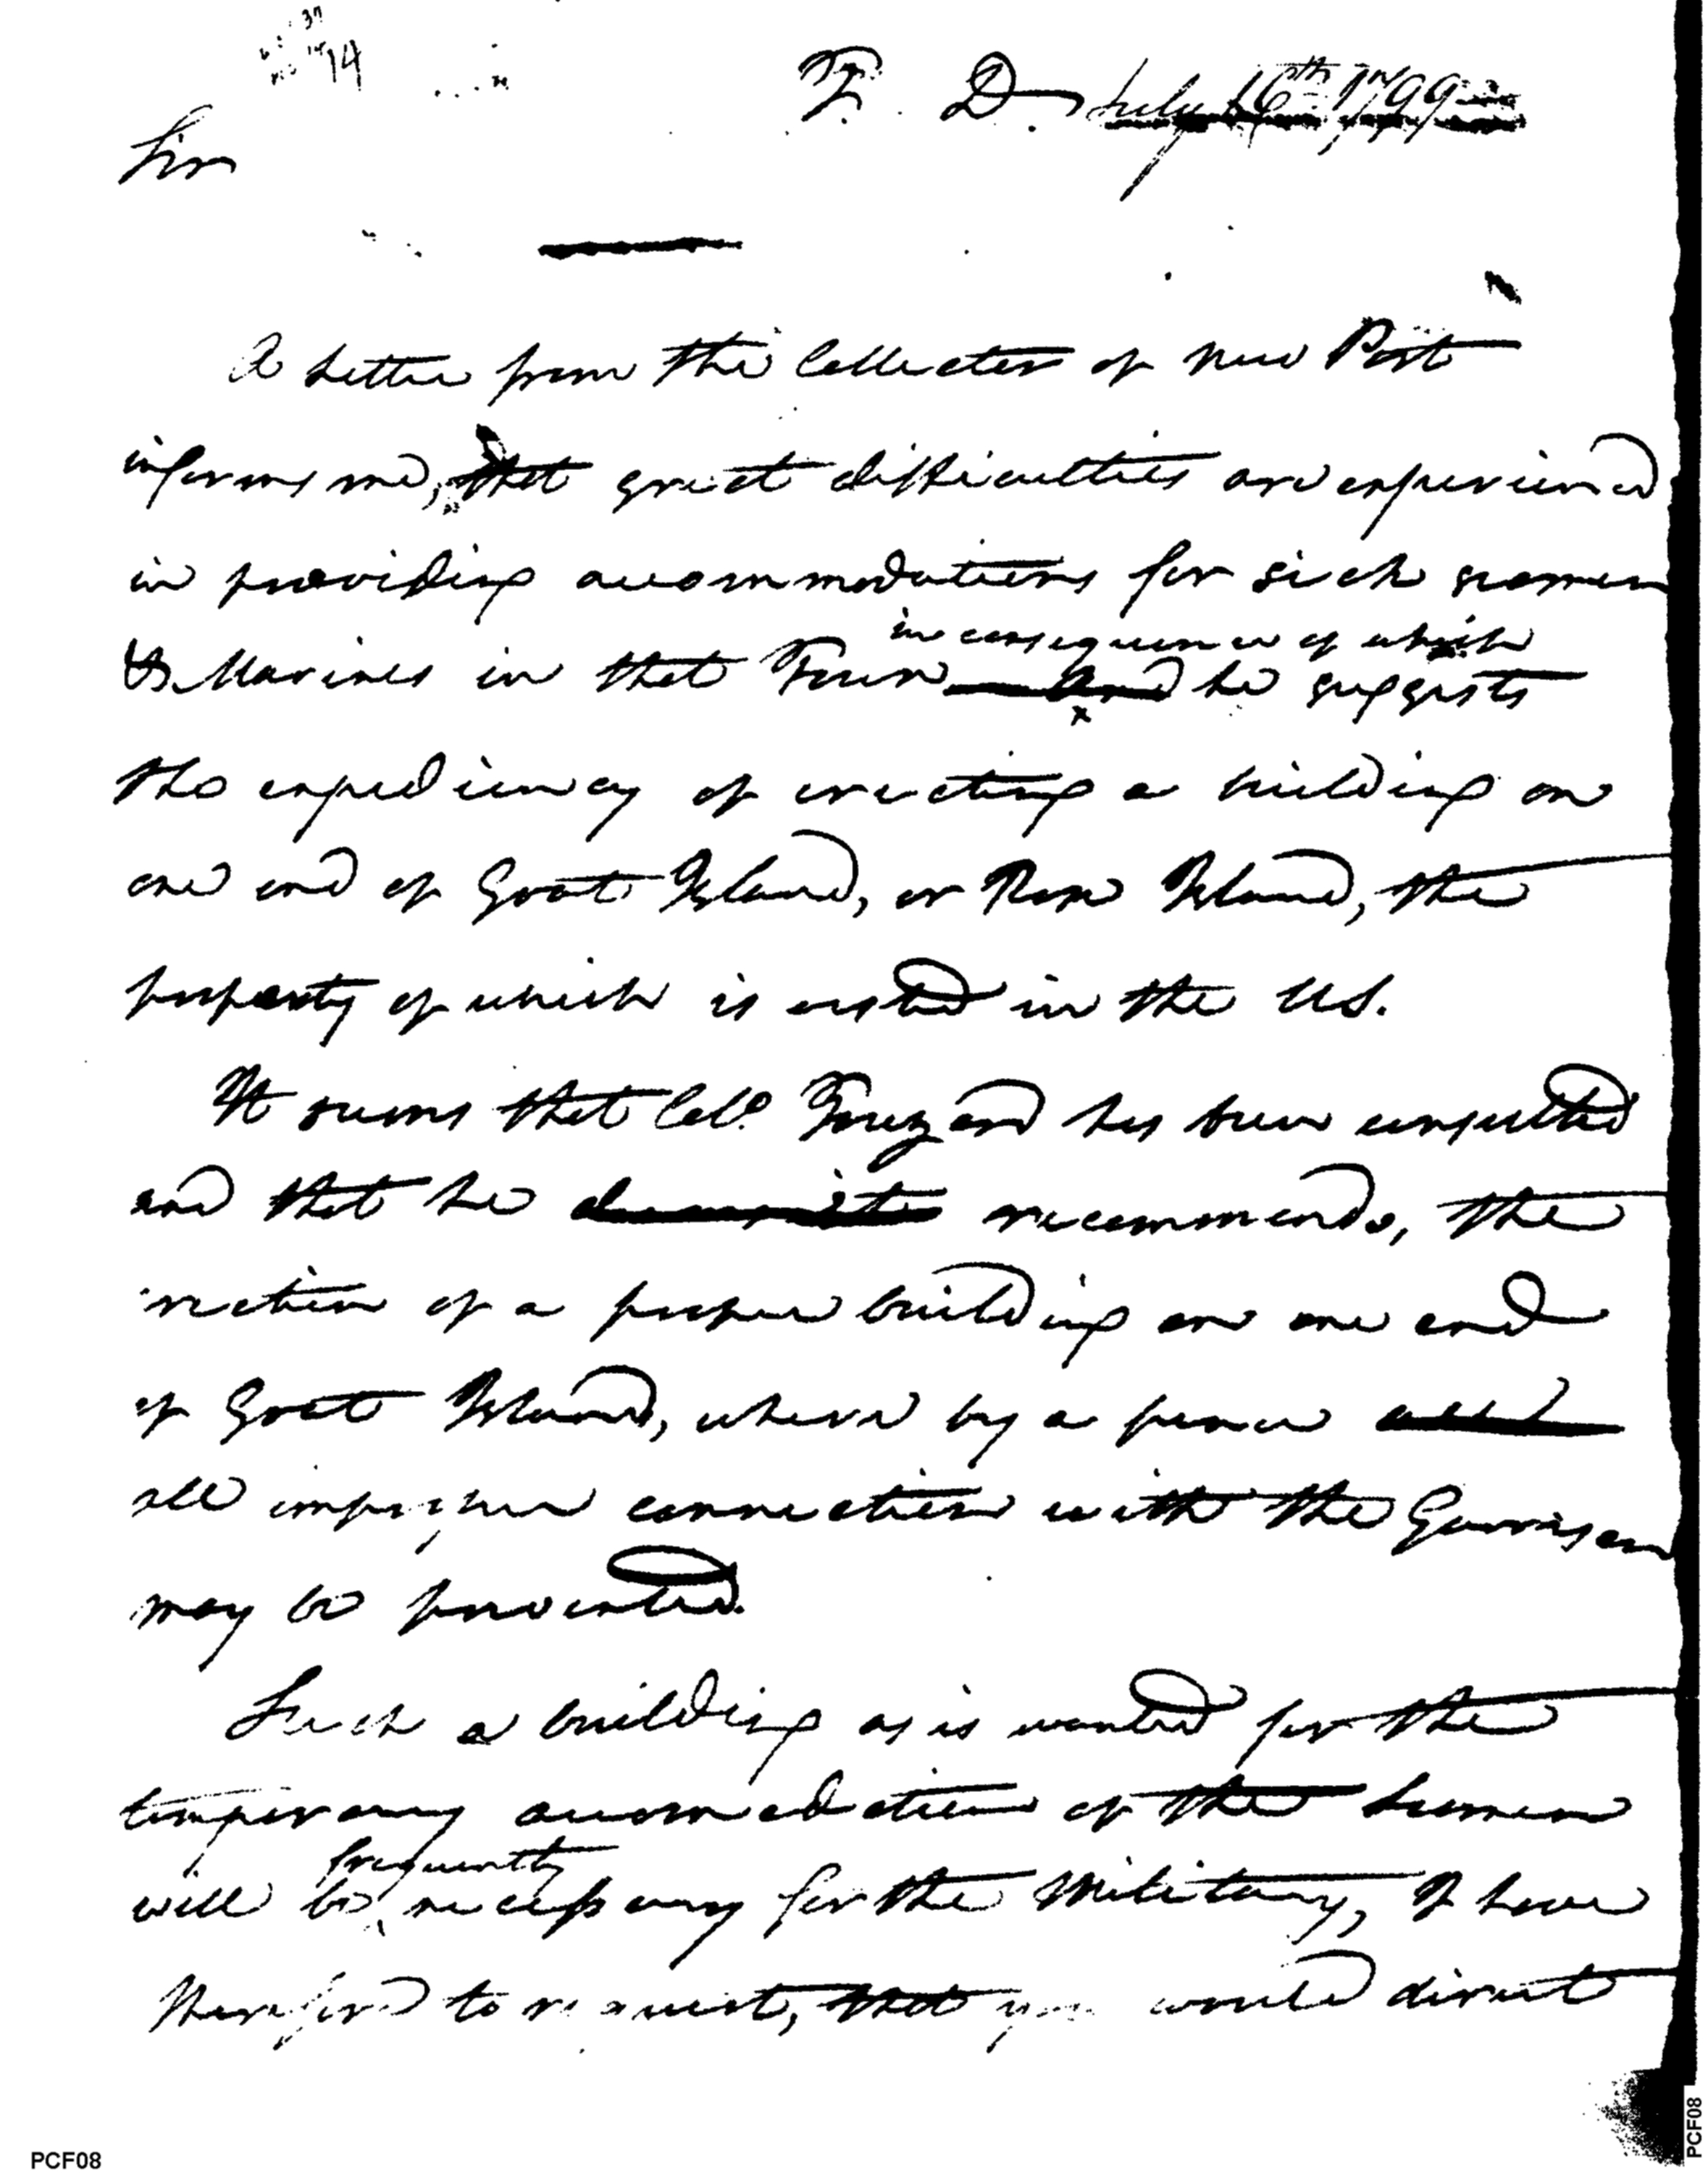 14
T. D. July 16th 1799
Sir
A letter from the Collector of New Port
informs me, that great difficulties are experienced
in providing accommodations for sick seamen
in consequence of which
& Marines in that Town and he suggests
the expediency of erecting a building on
one end of Goat Island, or Rose Island, the
property of which is vested in the US.
It seems that Coll. Touzard has been consulted
and that he recommends, the
erection of a proper building on one end
of Goat Island, where by a fence
all improper connection with the Garrison
may be prevented.
Such a building as is wanted for the
temporary accomodation of the seamen
frequently
will be necessary for the Military, I have
therefore to request, that you would direct
PCF08
PCF08